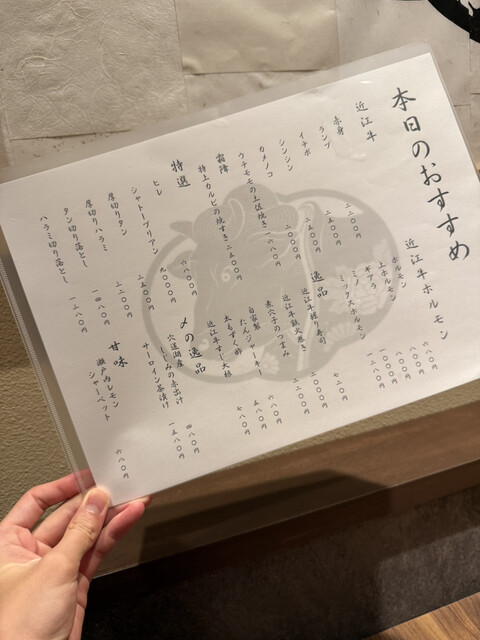 本日のおすすめ
近江牛
赤身
ランプ 二二〇〇円
イチボ 二五〇〇円
シンシン 二五〇〇円
カメノコ 二〇〇〇円
ウチモモの土佐焼き 一六八〇円
霜降
特上カルビの焼すき 二五〇〇円
特選
ヒレ 六八〇〇円
シャトーブリアン 九〇〇〇円
厚切りタン 二五〇〇円
厚切りハラミ 二二〇〇円
タン切り落とし 一四八〇円
ハラミ切り落とし 一五八〇円
近江牛ホルモン
ホルモン
上ホルモン
ギアラ
ミノ
ミックスホルモン
逸品
近江牛握り寿司 七二〇円
近江牛鉄火巻き
煮穴子のつまみ
自家製
たんジャーキー 六八〇円
太もずく酢 五八〇円
近江牛すじ大根 七八〇円
〆の逸品
宍道湖産
しじみの赤出汁 四八〇円
サーロイン茶漬け 一五八〇円
甘味
瀬戸内レモン
シャーベット 六八〇円